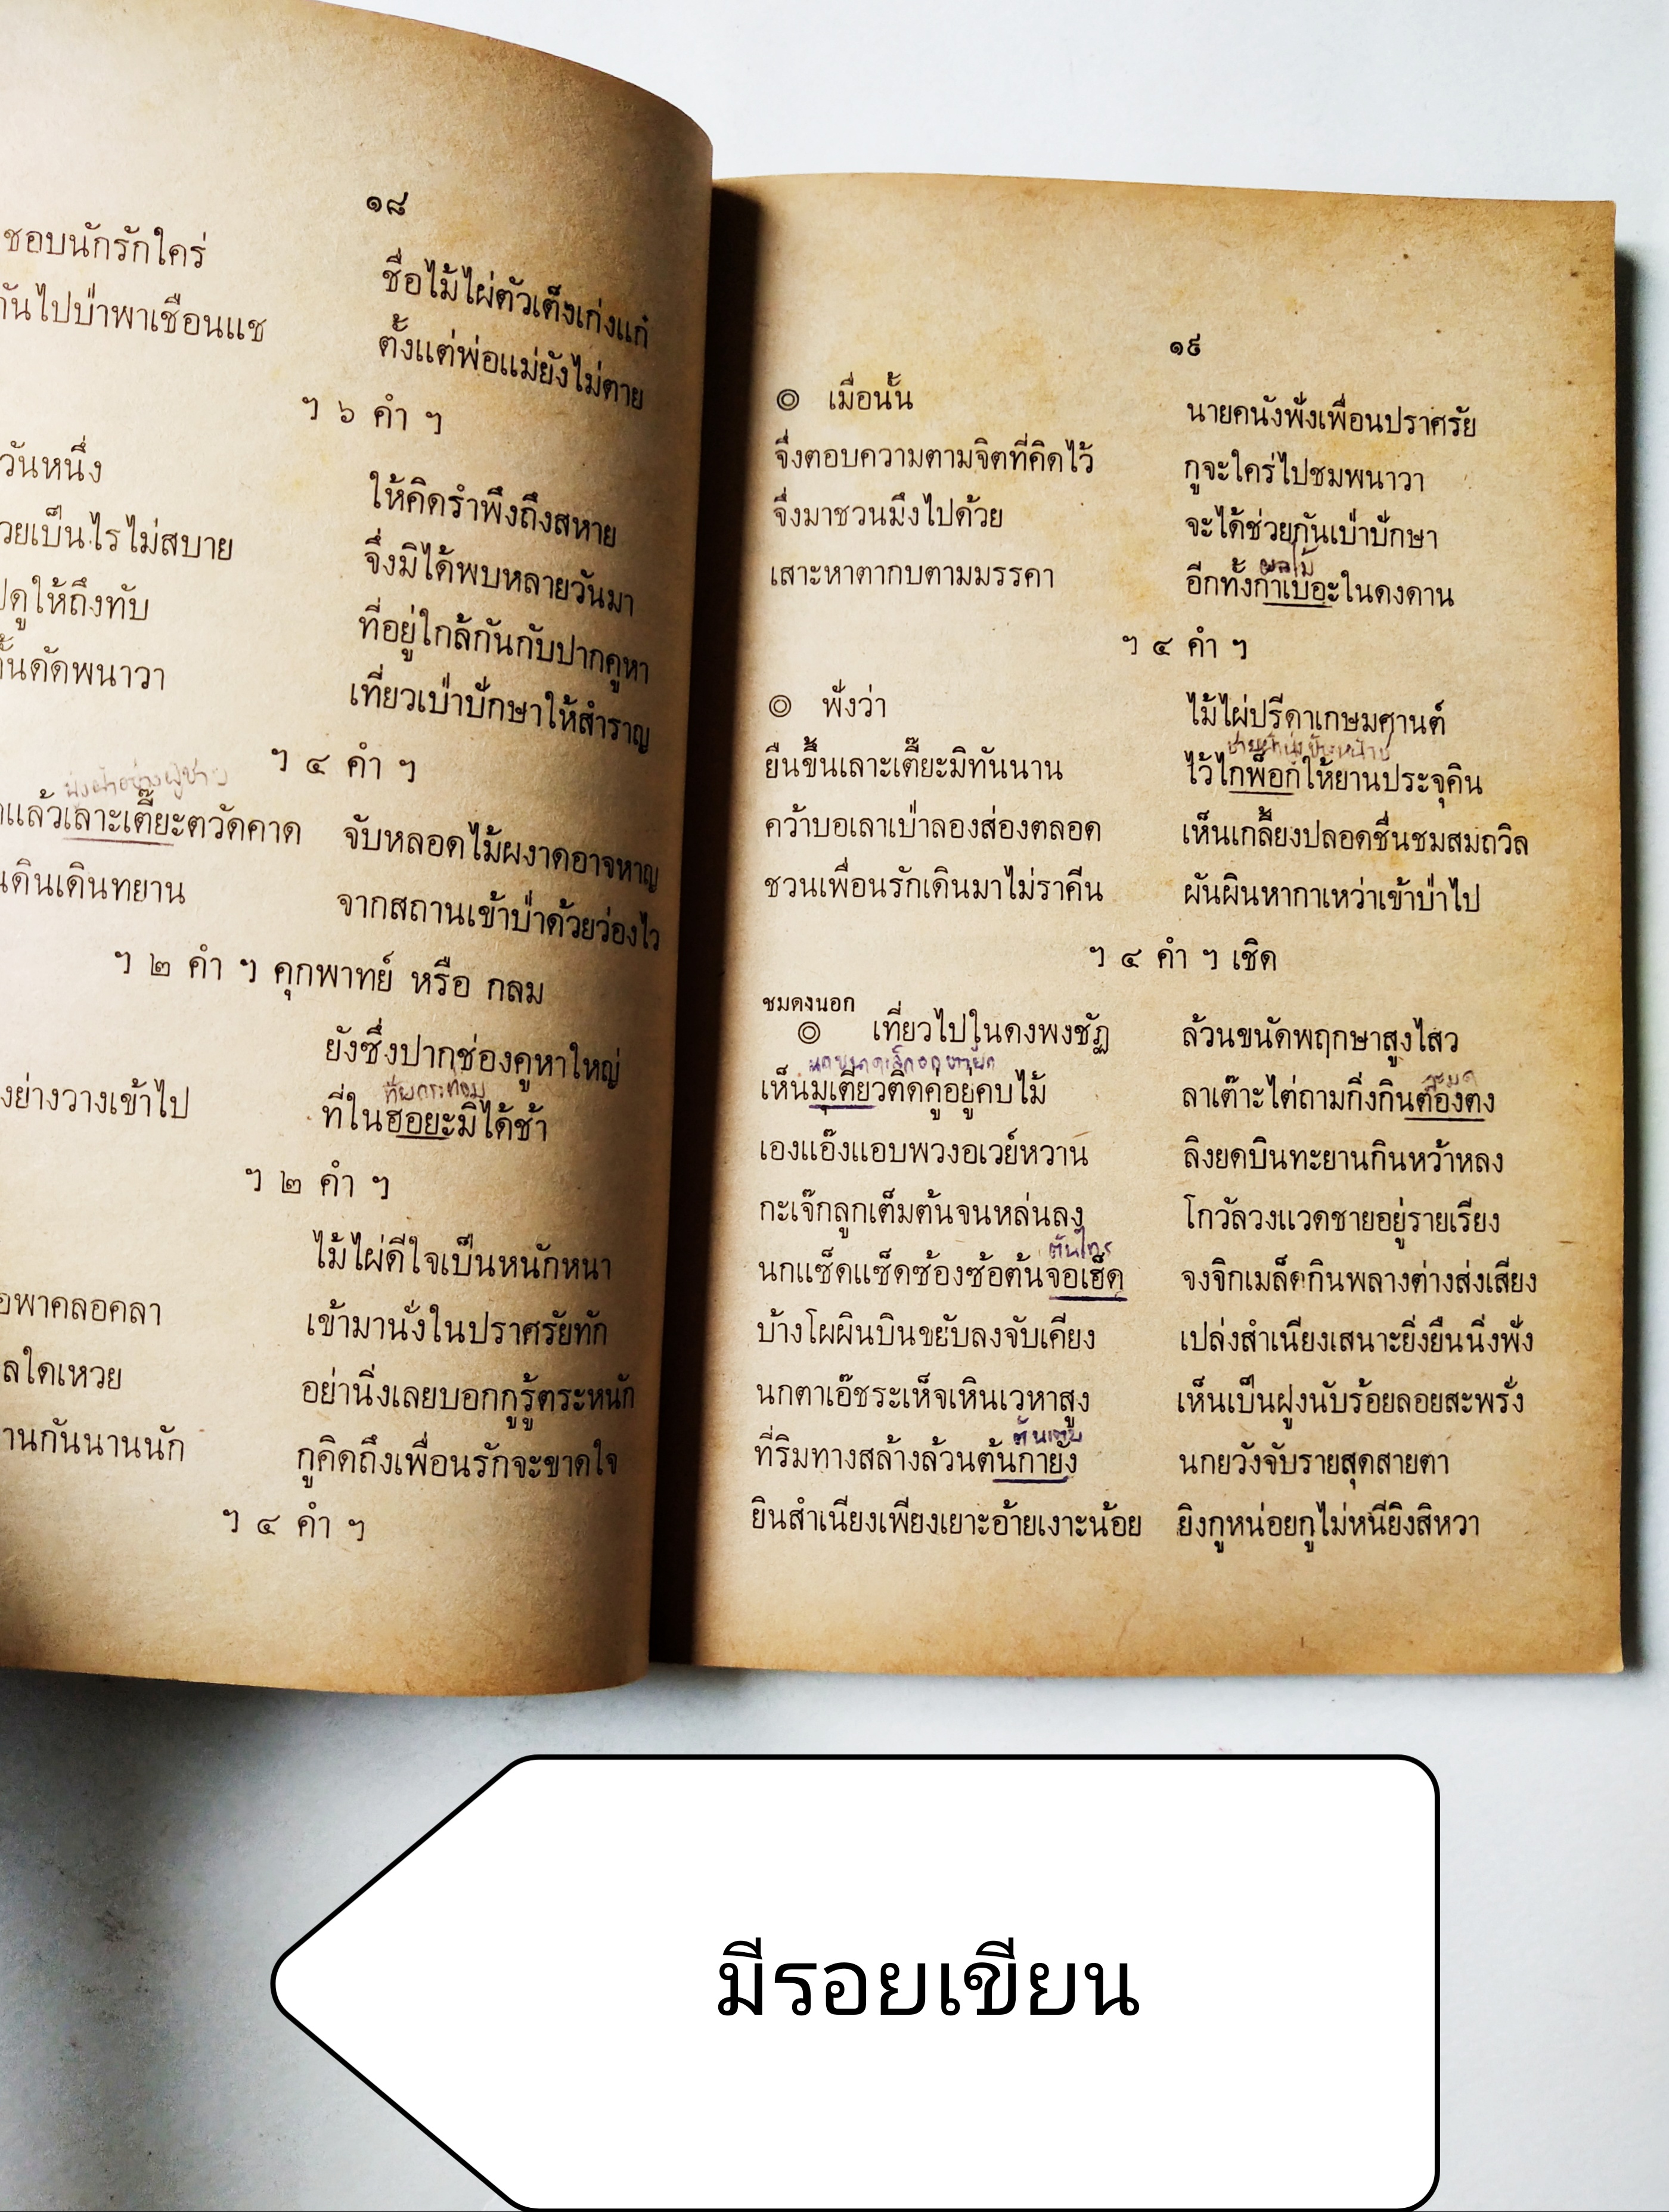 ๑๘
ชอบนักรักใคร่ ชื่อไม้ไผ่ตัวเต็งเก่งแก๋
กันไปป่าพาเชือนแช ตั้งแต่พ่อแม่ยังไม่ตาย
ฯ ๖ คำ ฯ
วันหนึ่ง ให้คิดรำพึงถึงสหาย
วยเป็นไรไม่สบาย จึ่งมิได้พบหลายวันมา
ปดูให้ถึงทับ ที่อยู่ใกล้กันกับปากคูหา
ั้นดัดพนาวา เที่ยวเป่าปักษาให้สำราญ
ฯ ๔ คำ ฯ
นุ่งผ้าอย่างผู้ชาย
แล้วเลาะเตี๊ยะตวัดคาด จับหลอดไม้ผงาดอาจหาญ
เดินเดินทยาน จากสถานเข้าป่าด้วยว่องไว
ฯ ๒ คำ ฯ คุกพาทย์ หรือ กลม
ยังซึ่งปากช่องคูหาใหญ่
ที่พักกระท่อม
งย่างวางเข้าไป ที่ในฮอยะมิได้ช้า
ฯ ๒ คำ ฯ
ไม้ไผ่ดีใจเป็นหนักหนา
อพาคลอคลา เข้ามานั่งในปราศรัยทัก
ลใดเหวย อย่านิ่งเลยบอกกูรู้ตระหนัก
านกันนานนัก กูคิดถึงเพื่อนรักจะขาดใจ
ฯ ๔ คำ ฯ
๑๙
◎ เมื่อนั้น นายคนังฟังเพื่อนปราศรัย
จึ่งตอบความตามจิตที่คิดไว้ กูจะใคร่ไปชมพนาวา
จึ่งมาชวนมึงไปด้วย จะได้ช่วยกันเป่าปักษา
ผลไม้
เสาะหาตากบตามมรรคา อีกทั้งกำเบอะในดงดาน
ฯ ๔ คำ ฯ
◎ ฟังว่า ไม้ไผ่ปรีดาเกษมศานต์
ยืนขึ้นเลาะเตี๊ยะมิทันนาน ไว้ไกพ็อกให้ยานประจุคิน
คว้าบอเลาเป่าลองส่องตลอด เห็นเกลี้ยงปลอดชื่นชมสมถวิล
ชวนเพื่อนรักเดินมาไม่ราคีน ผันผินหากาเหว่าเข้าป่าไป
ฯ ๔ คำ ฯ เชิด
ชมดงนอก
◎ เที่ยวไปในดงพงชัฏ ล้วนขนัดพฤกษาสูงไสว
เห็นมุเตี่ยวติดคู่อยู่คบไม้ ลาเต๊าะไต่ถามกิ่งกินต้องตง
เองแอ๊งแอบพวงอเวย์หวาน ลิงยดบินทะยานกินหว้าหลง
กะเจ๊กลูกเต็มต้นจนหล่นลง โกวัลวงแวดชายอยู่รายเรียง
ต้นไทร
นกแซ็ดแซ็ดซ้องซ้อต้นจอเฮ็ด จงจิกเมล็ดกินพลางต่างส่งเสียง
บ้างโผผินบินขยับลงจับเคียง เปล่งสำเนียงเสนาะยิ่งยืนนิ่งฟัง
นกตาเอ๊ชระเห็จเหินเวหาสูง เห็นเป็นฝูงนับร้อยลอยสะพรั่ง
ที่ริมทางสล้างล้วนต้นกายัง นกยวังจับรายสุดสายตา
ยินสำเนียงเพียงเยาะอ้ายเงาะน้อย ยิงกูหน่อยกูไม่หนียิงสิหวา
มีรอยเขียน